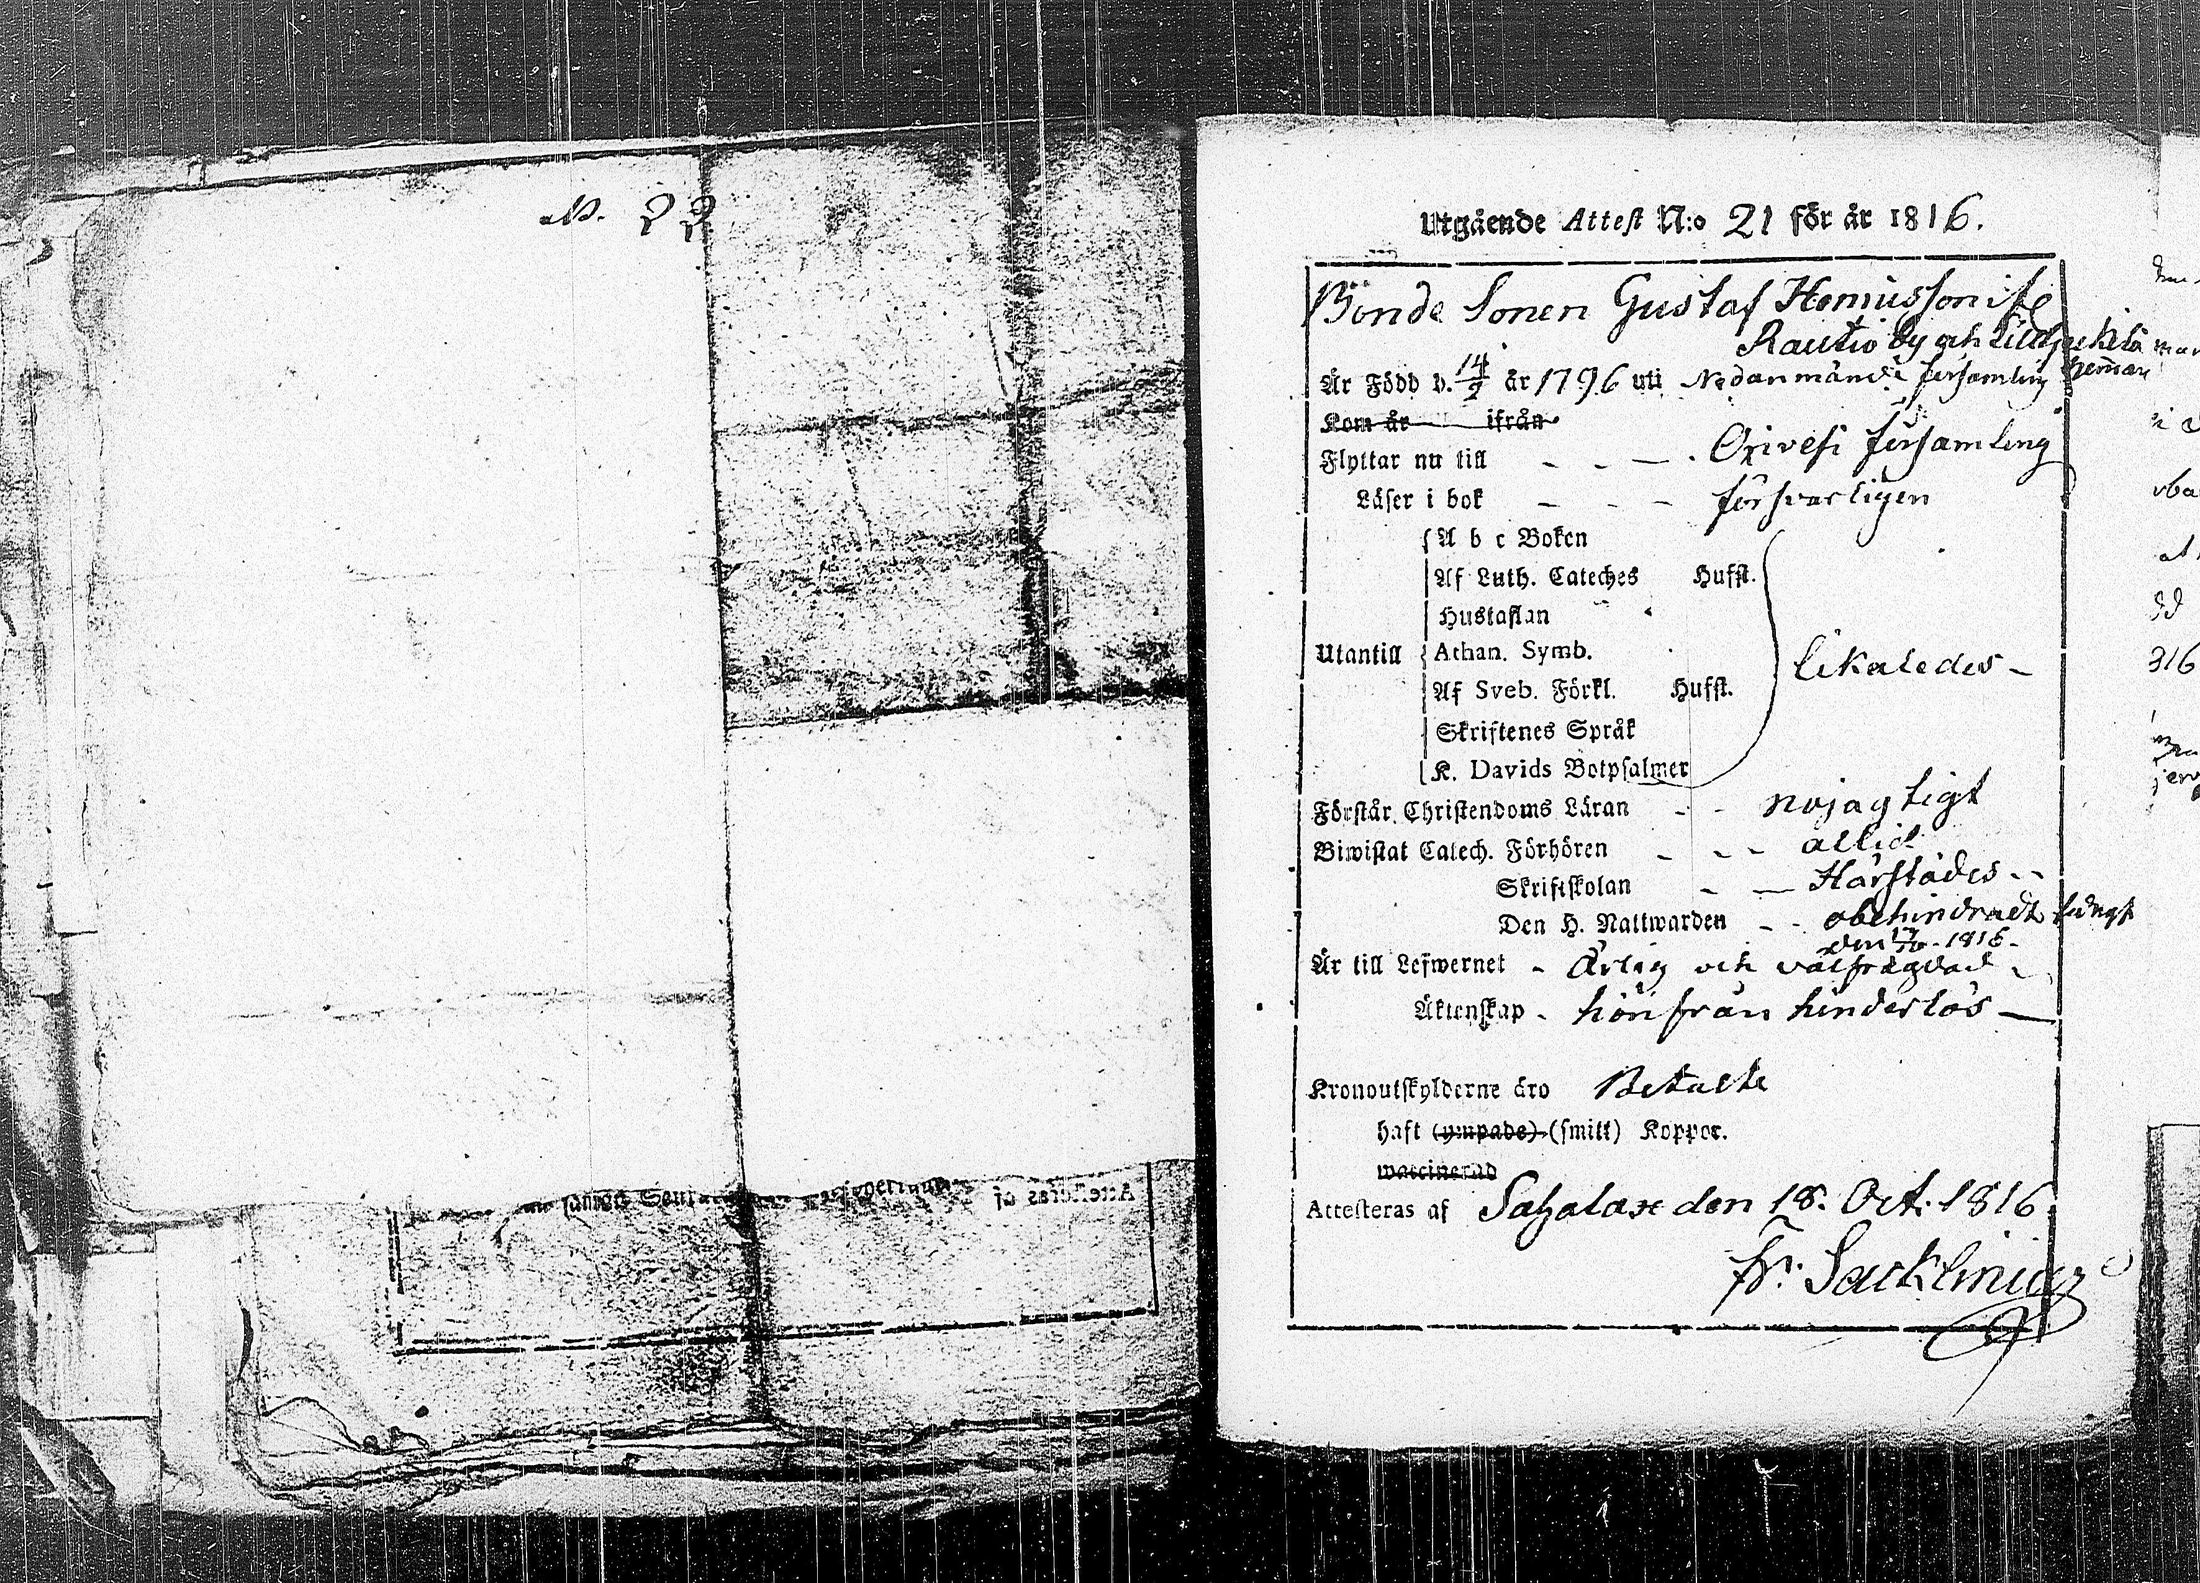 N. 22
Utgående Attest N:o 21 för år 1816.
Bonde Sonen Gustaf Hemmusson ifr
Rautio by och
Är Född d. 14/2 år 1796 uti Nedanmände församling heman
Kom år ifrån
Flyttar nu till - - - Orivesi församling
Läser i bok - - - försvarligen
A b c Boken
Af Luth. Cateches Hufst.
Hustaflan
Utantill Athan. Symb. likaledes -
Af Sveb. Förkl. Hufst.
Skriftenes Språk
K. Davids Botpsalmer
Förstår Christendoms Läran - - nojagtigt
Biwistat Catech. Förhören - - - altid
Skriftskolan - - Härstädes - -
Den H. Nattwarden - - obehindradt
den 1816 -
Är till Lefwernet - Ärlig och välfrägdad -
Äktenskap - hönfrån hinderlös -
Kronoutskylderne äro Betalte
haft (ympade) (smitt) Koppor.
waccinerad
Attesteras af Sahalax den 18. Oct. 1816
Fr. Sacklinius
Attesteras af